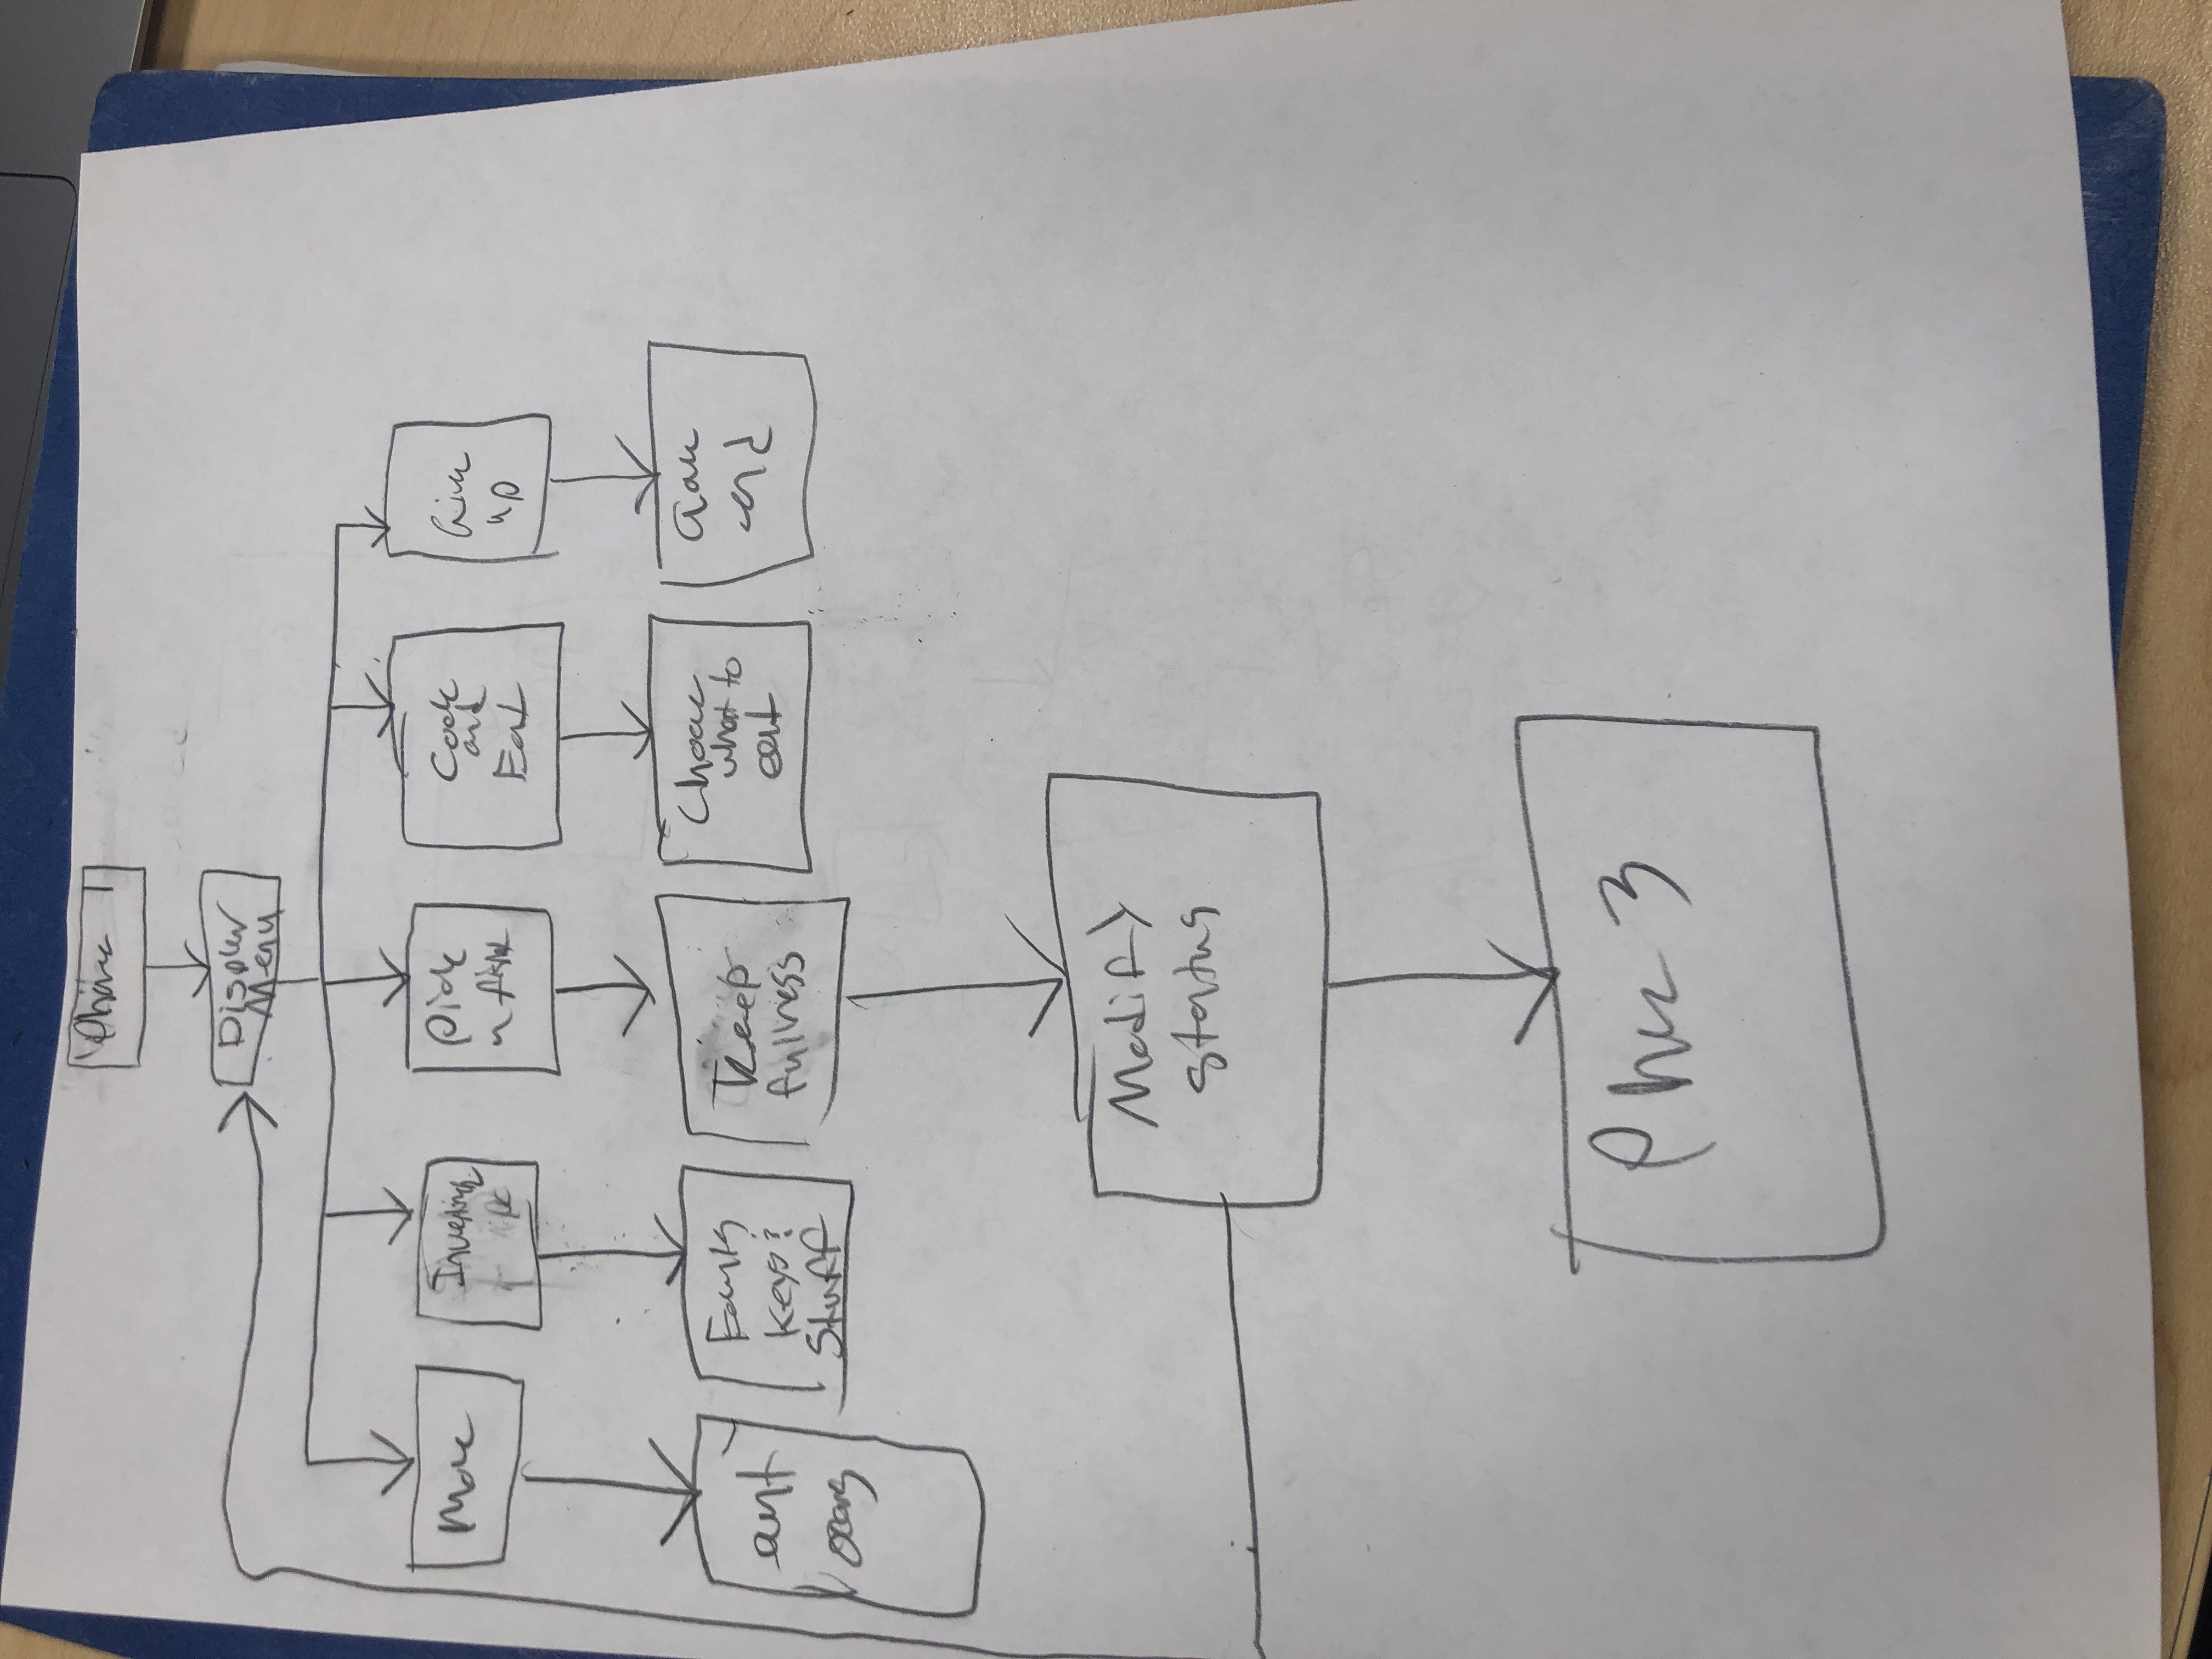 Phase 1
Display
Menu
Move
Pick
a fight
Cook
and
Eat
Give
up
Keys?
Stuff
Keep
fullness
Choose
what to
eat
Game
end
Modify
status
Phase 3